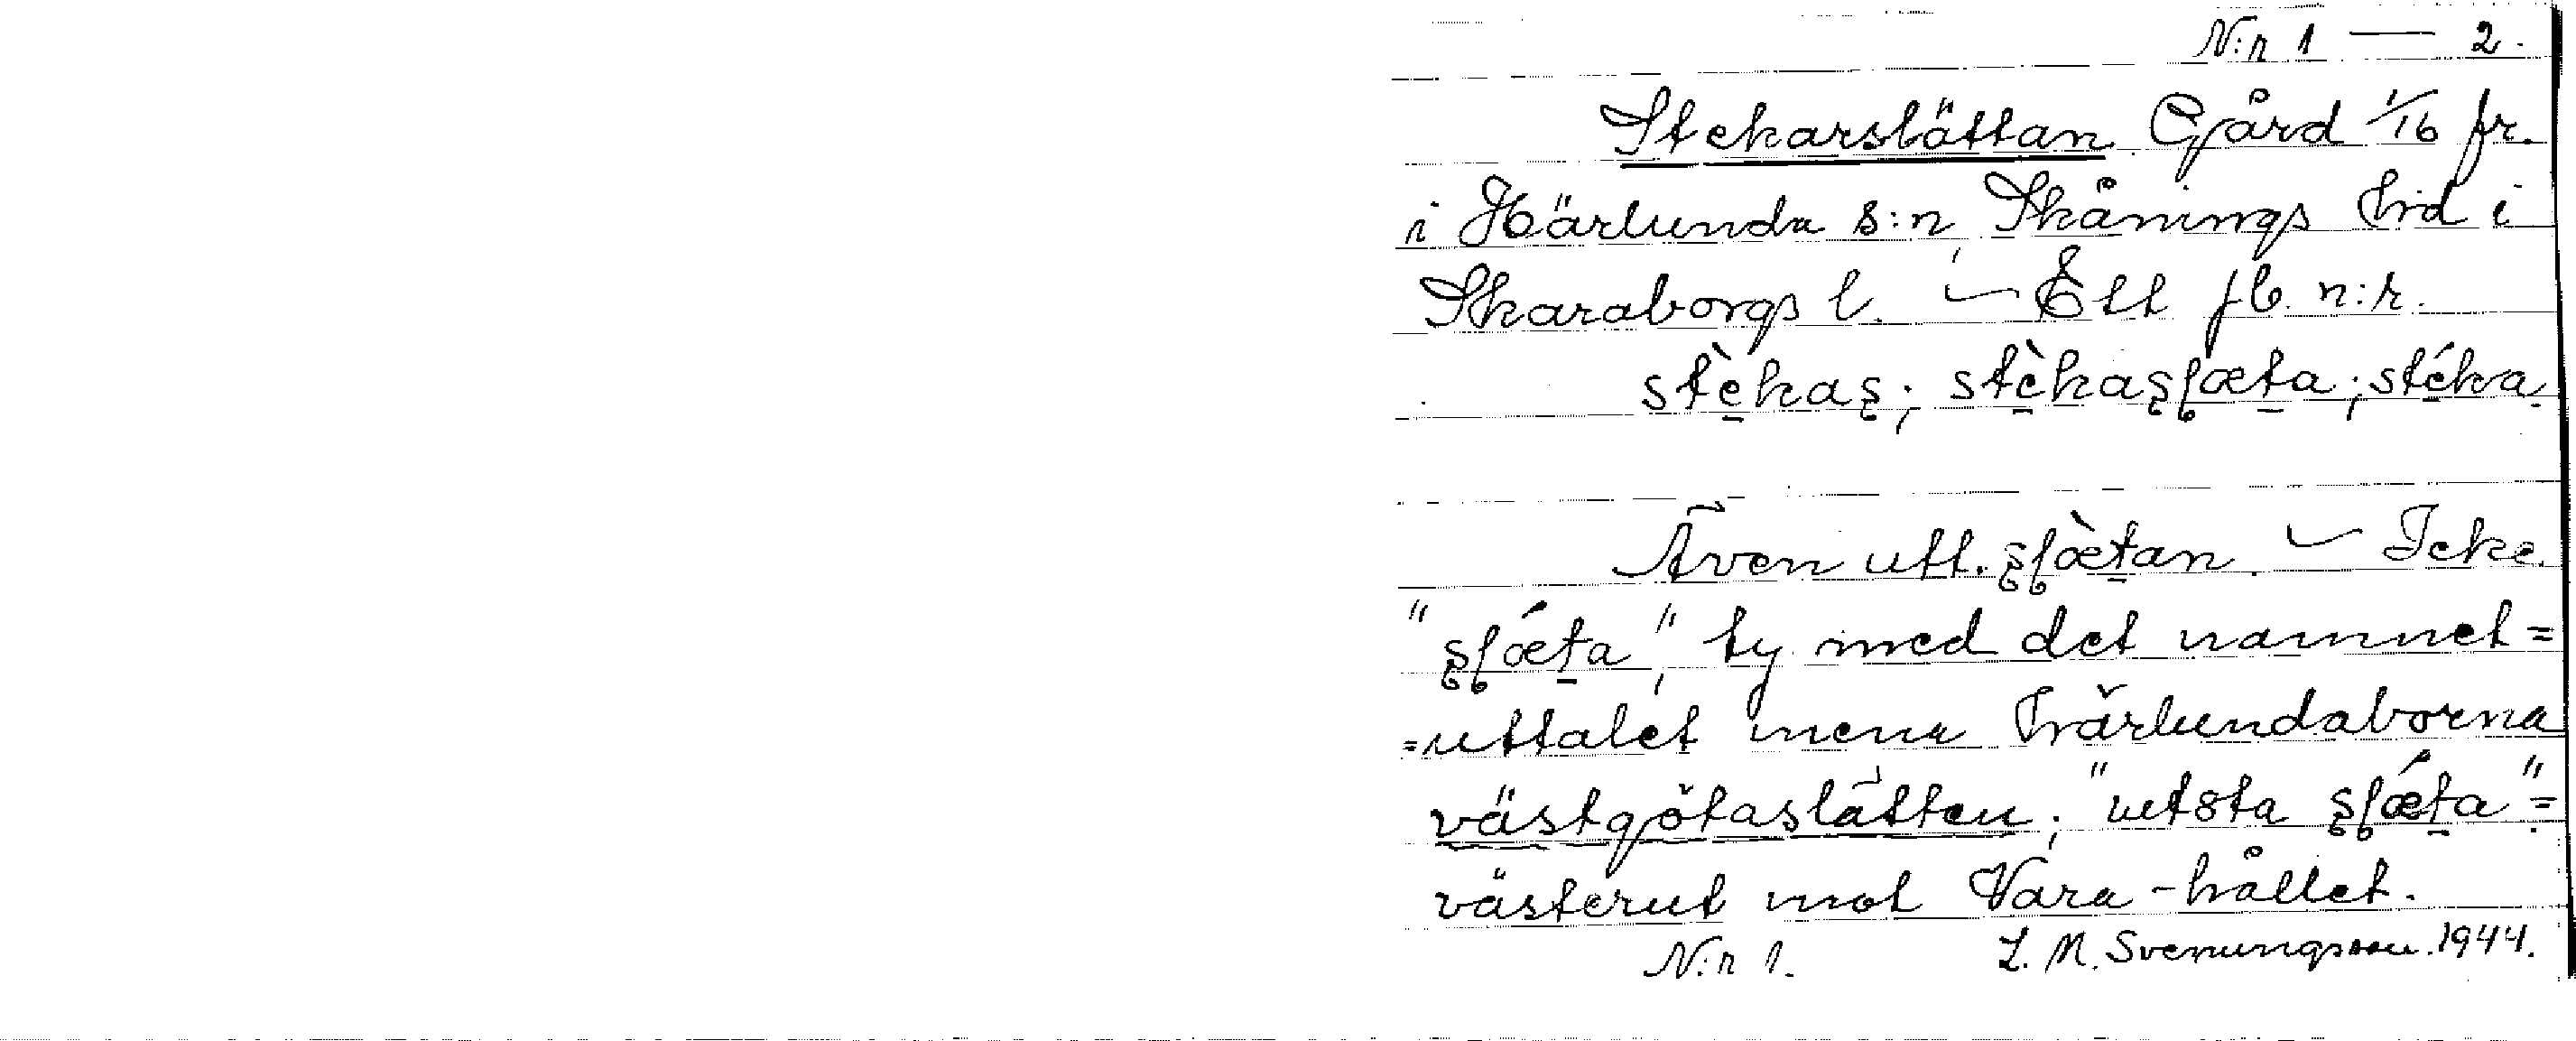 N:r 1 — 2.
Stekarslättan Gård 1/16 fr.
i Härlunda s:n, Skånings Hrd i
Skaraborgs l. ~ Ett jb. n:r.
stèkaʂ; stèkaʂɭæta; stéka
Även utt. ʂɭæ̀tan. ~ Icke
"ʂɭǽta", ty med det namnet=
=uttalet mena Härlundaborna
västgötaslätten; "utsta ʂɭǽta"=
västerut mot Vara-hållet.
N:r 1. L. M. Svenungsson. 1944.